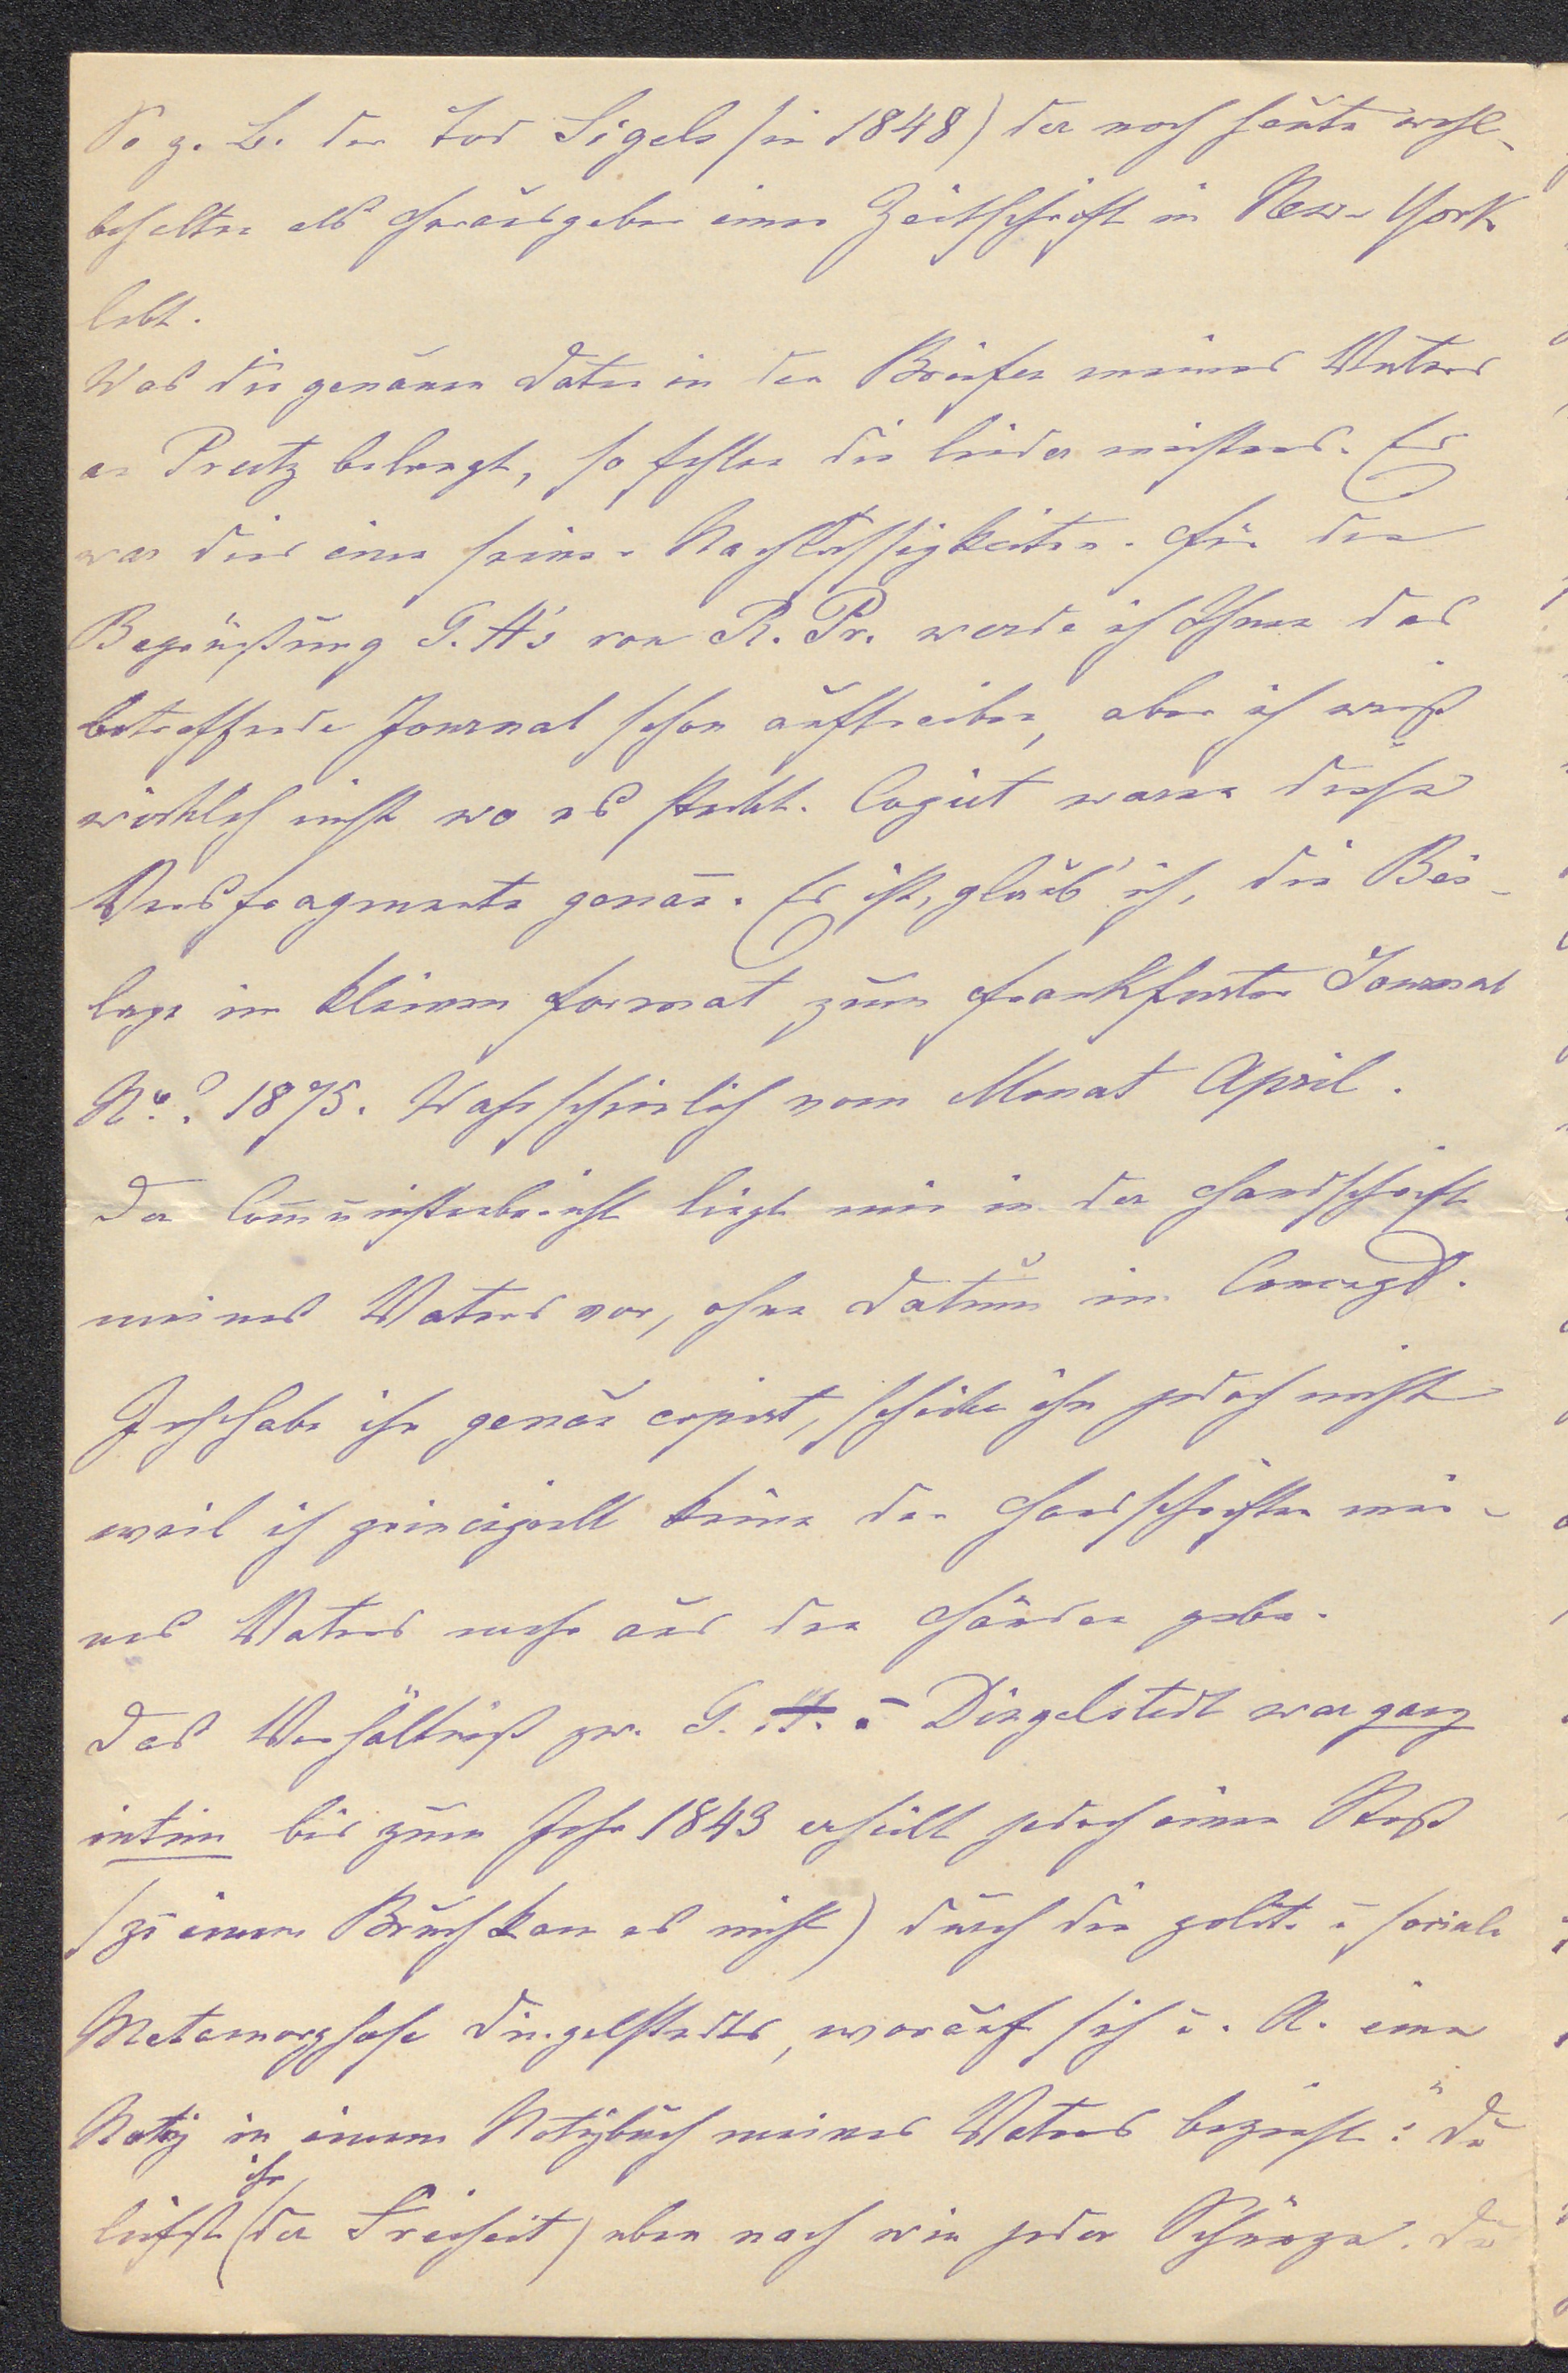 So z. B. der Tod Sigels (in 1848) der noch heute wohl-
behalten als Herausgeber einer Zeitschrift in New-York
lebt.
Was die genauen Daten in den Briefen meines Vaters
an Prutz belangt, so fehlen die leider meistens. Es
war dies eine seiner Nachlässigkeiten. Für die
Begrüßung G. H's von R. Pr. werde ich Ihnen das
betreffende Journal schon auftreiben, aber ich weiß
wirklich nicht wo es steckt. Copirt waren diese
Versfragmente genau. Es ist, glaub' ich, die Bei-
lage in kleinem Format zum Frankfurter Journal
No.? 1875. Wahrscheinlich vom Monat April.
Der Communistenbericht liegt mir in der Handschrift
meines Vaters vor, ohne Datum im Concept.
Ich habe ihn genau copirt, schicke ihn jedoch nicht
weil ich principiell keine der Handschriften mei-
nes Vaters mehr aus den Händen gebe.
Das Verhältniß zw. G. H. u Dingelstedt war ganz
intim bis zum Jahr 1843 erhielt jedoch einen Stoß
(zu einem Bruch kam es nicht) durch die polit. u sociale
Metamorphose Dingelstedts, worauf sich u. A. eine
Notiz in einem Notizbuch meines Vaters bezieht: "Du
liefst ihr (der Freiheit) eben nach wie jeder Schürze. Du